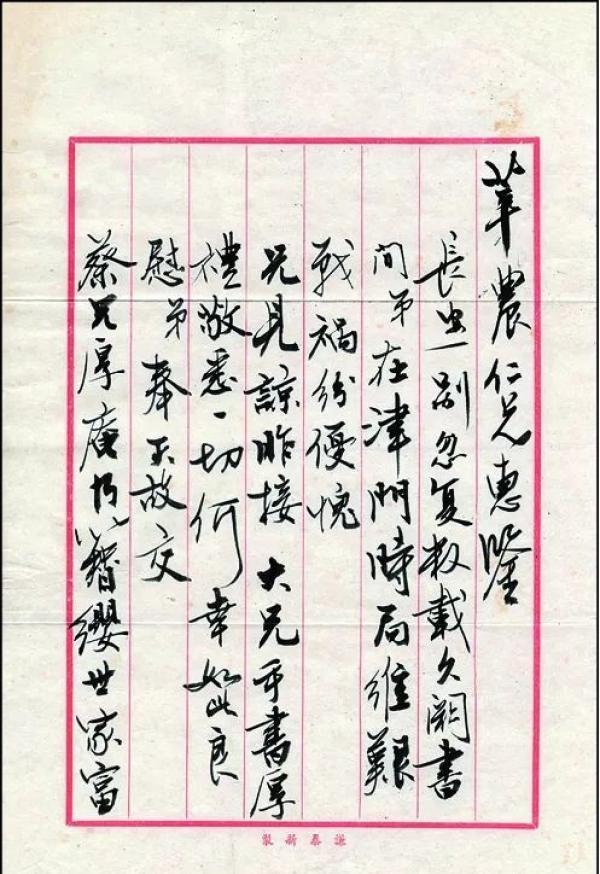 華農仁兄惠鑒
長忠一別忽复数載久闕書
間弟在津門時局維艱
戰禍紛優愧
兄見諒昨接大兄手書厚
禮敬悉一切何幸如此良
慰弟奉天故交
蔡兄厚庵乃簪纓世家富
謙泰新製